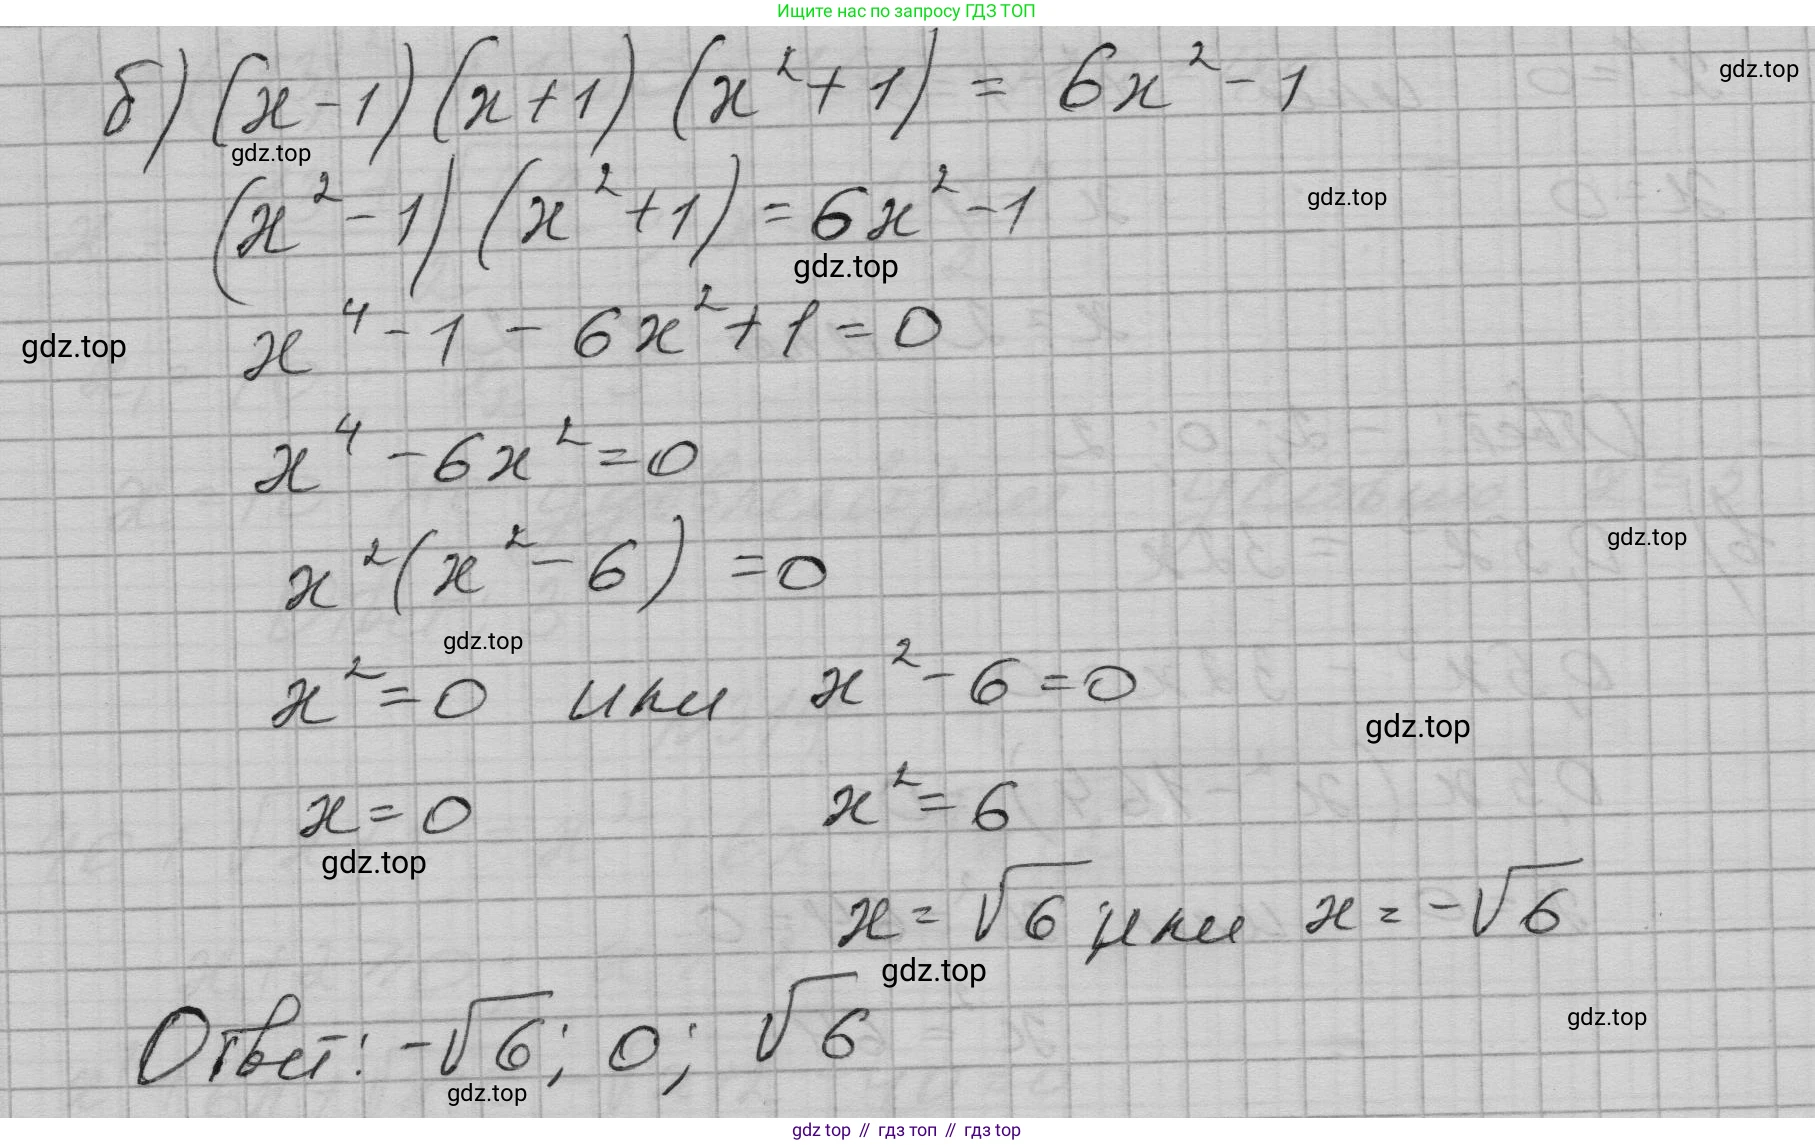 Ищите нас по запросу ГДЗ ТОП
б) (x-1)(x+1)(x²+1) = 6x²-1
gdz.top
gdz.top
(x²-1)(x²+1)=6x²-1
gdz.top
gdz.top
x⁴-1-6x²+1=0
gdz.top
x⁴-6x²=0
gdz.top
x²(x²-6)=0
gdz.top
x²=0 или x²-6=0
gdz.top
x=0 x²=6
gdz.top
x=√6 или x=-√6
gdz.top
gdz.top
Ответ: -√6; 0; √6
gdz.top
gdz top // гдз топ // gdz top